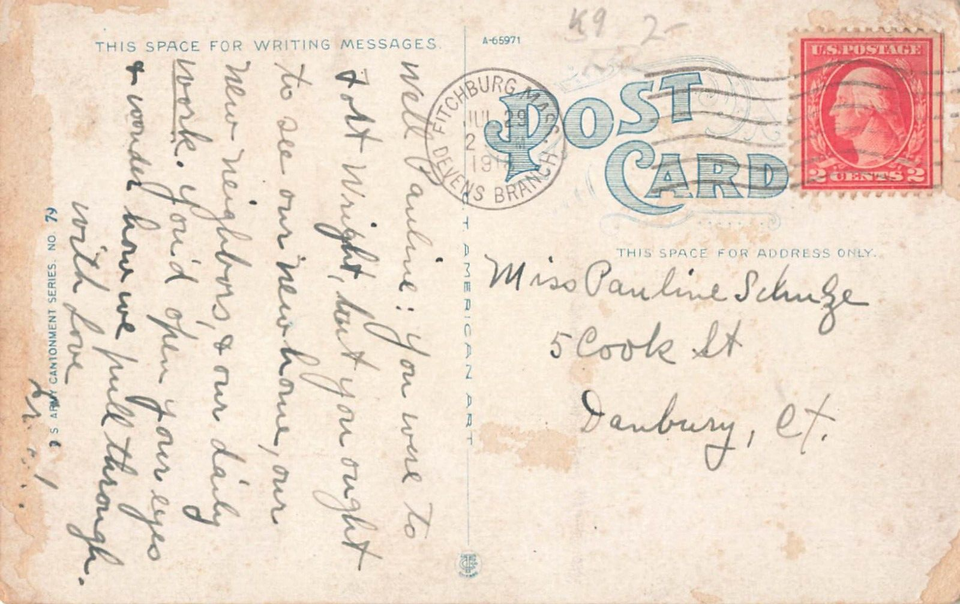 K9 2-
THIS SPACE FOR WRITING MESSAGES.
A-65971
POST
CARD
FITCHBURG, MASS.
JUL 29
2
191
DEVENS BRANCH
U.S. POSTAGE
2 CENTS 2
THIS SPACE FOR ADDRESS ONLY.
Miss Pauline Schulze
5 Cook St
Danbury, Ct.
Well Pauline: You were to
Fort Wright, but you ought
to see our new home, our
new neighbors, & our daily
work. You'd open your eyes
& wonder how we pull through.
with love
U S ARMY CANTONMENT SERIES. NO. 79
T AMERICAN ART